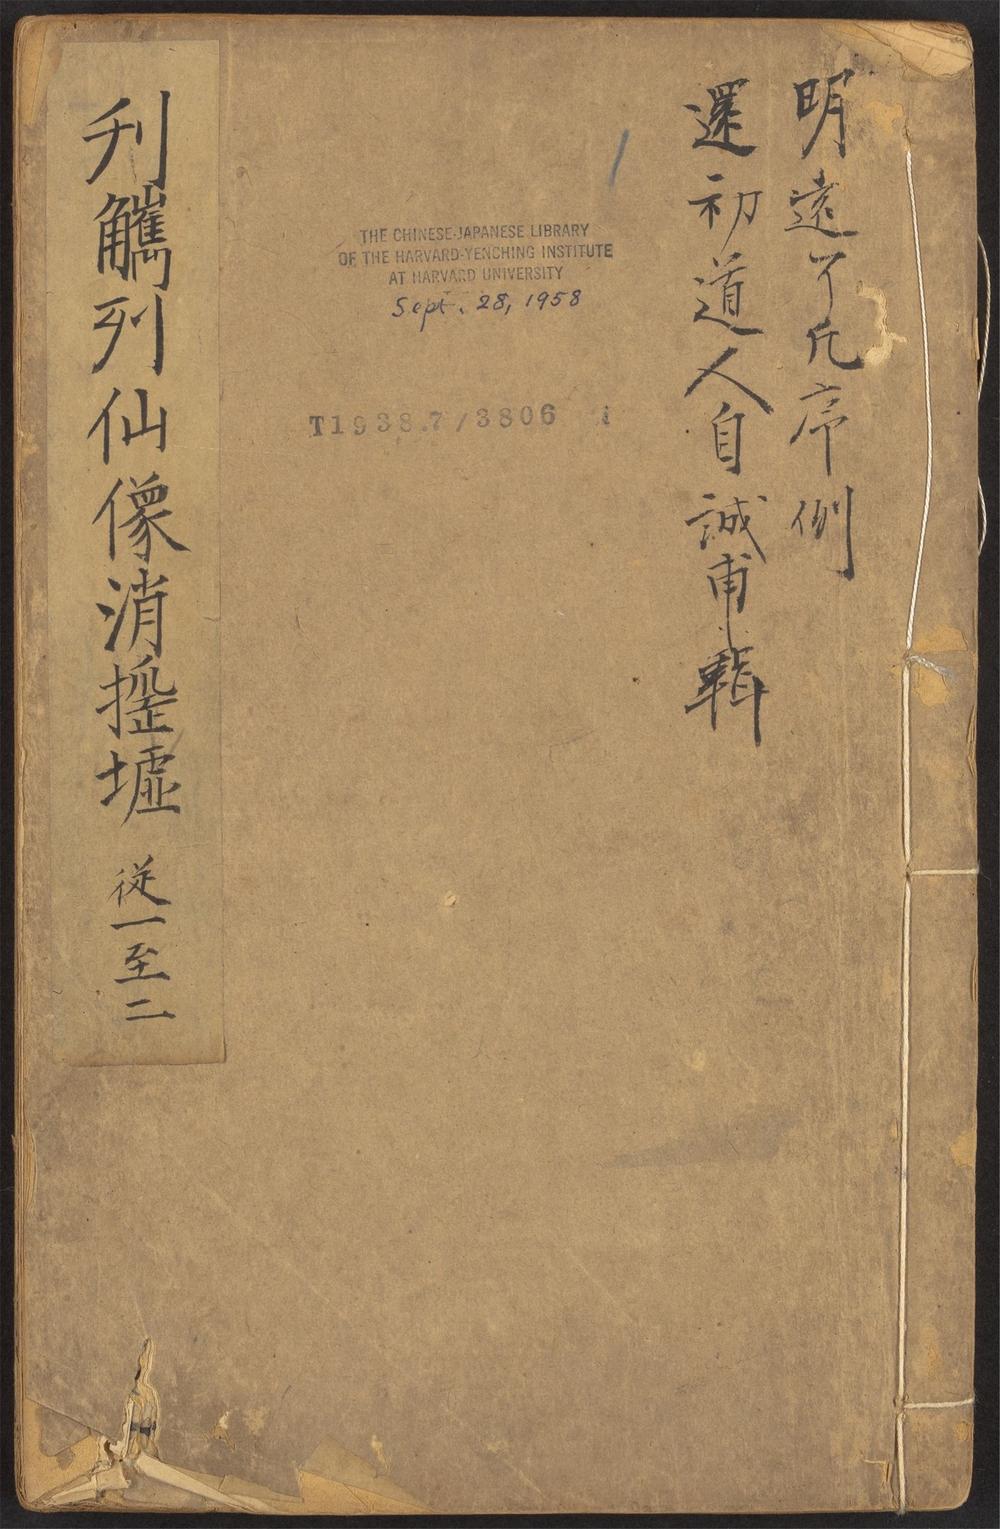 明遠了凡序例
還初道人自誠甫輯
THE CHINESE-JAPANESE LIBRARY
OF THE HARVARD-YENCHING INSTITUTE
AT HARVARD UNIVERSITY
Sept. 28, 1958
T1938.7/3806
列仙像消揺墟
從一至二